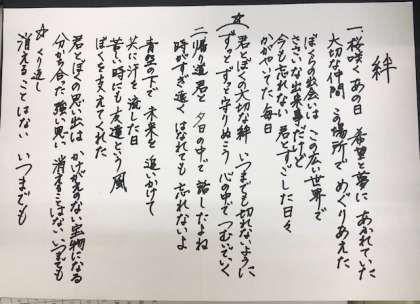 絆
一、桜咲くあの日 希望と夢に あふれていた
大切な仲間 この場所で めぐりあえた
ぼくらの出会いは この広い世界で
ささいな出来事だけど
今も忘れない 君とすごした日々
かがやいてた 毎日
☆君とぼくの大切な絆 いつまでも切れないように
ずっとずっと守りぬこう 心の中でつむいでいく
二、帰り道君と 夕日の中で 話したよね
時がすぎ遠く はなれても 忘れないよ
青空の下で 未来を追いかけて
共に汗を流した日
苦しい時にも 友達という風
ぼくを支えてくれた
君とぼくの思い出は かけがえのない宝物になる
分かち合った強い思い 消えることはないいつまでも
☆くり返し
消えることはない いつまでも